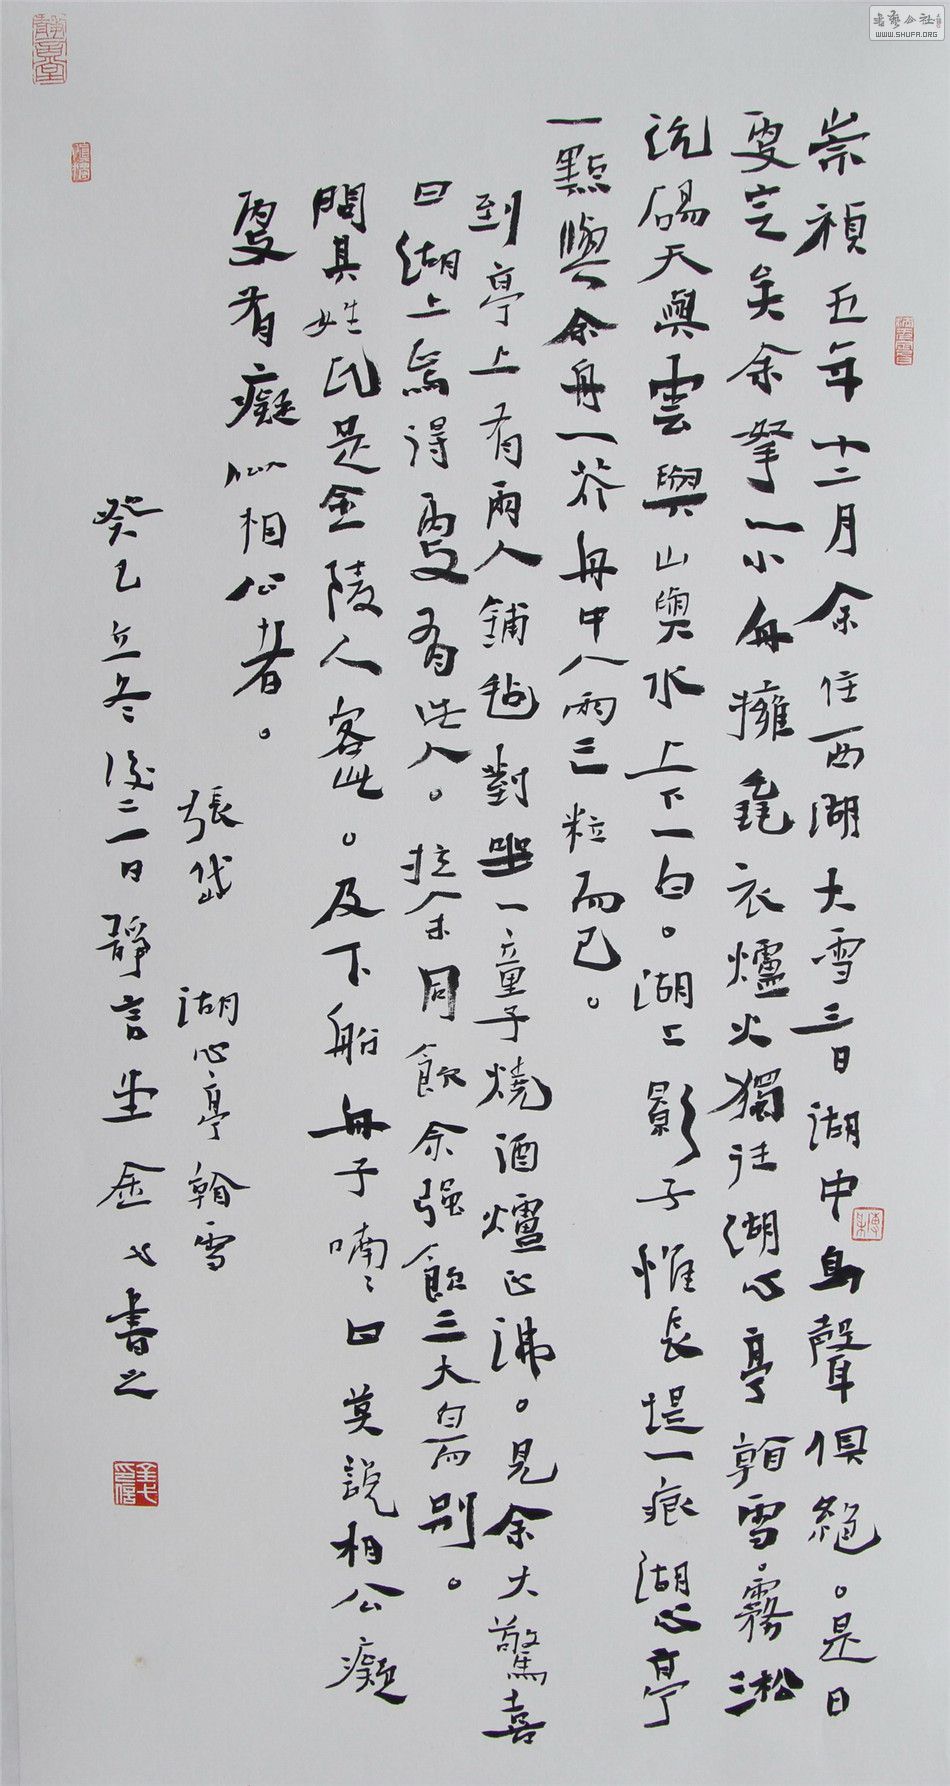 崇禎五年十二月余住西湖大雪三日湖中鳥聲俱絕。是日
更定矣余拏一小舟擁毳衣爐火獨往湖心亭看雪。霧淞
沆碭天與雲與山與水上下一白。湖上影子惟長堤一痕湖心亭
一點與余舟一芥舟中人兩三粒而已。
到亭上有兩人鋪氈對坐一童子燒酒爐正沸。見余大驚喜
曰湖上焉得更有此人。拉余同飲余強飲三大白而別。
問其姓氏是金陵人客此。及下船舟子喃〻曰莫說相公癡
更有癡似相公者。
張岱 湖心亭看雪
癸巳立冬後三日靜言堂金七書之
WWW.SHUFA.ORG